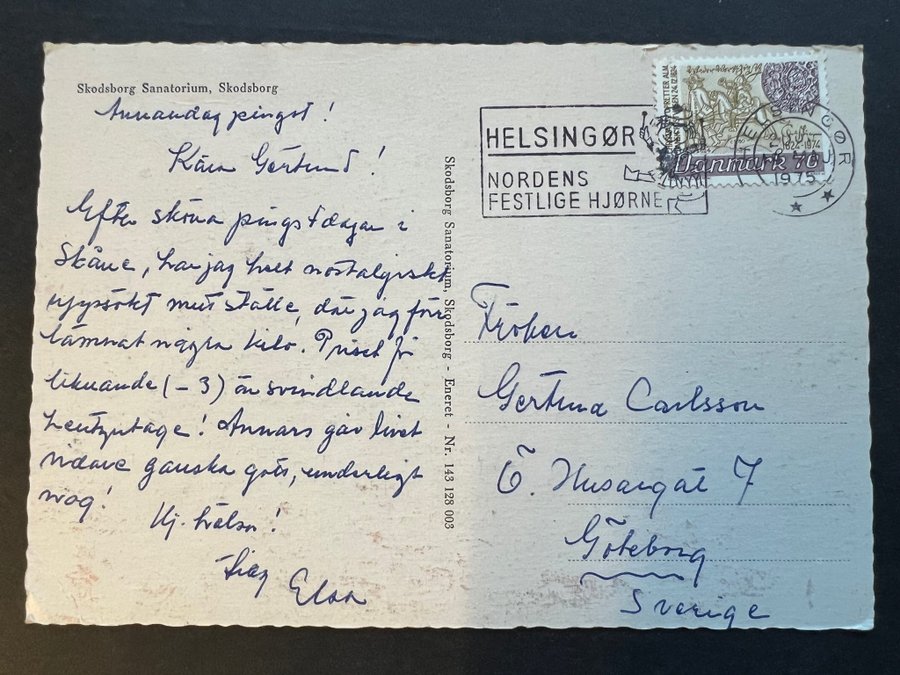 Skodsborg Sanatorium, Skodsborg
Annandag pingst!
Kära Gertrud!
Efter sköna pingstdagar i
Skåne, har jag helt nostalgiskt
uppsökt mitt ställe, där jag för
lämnat några kilo. Priset för
liknande (-3) är svindlande
heutzutage! Annars går livet
vidare ganska gott, underligt
nog!
Hj. hälsn!
Elsa
Skodsborg Sanatorium, Skodsborg - Eneret - Nr. 143 128 003
HELSINGØR
NORDENS
FESTLIGE HJØRNE
1824-1974
Danmark 70
HELSINGØR
1975
Fröken
Gertrud Carlsson
Ö. Husargat 7
Göteborg
Sverige